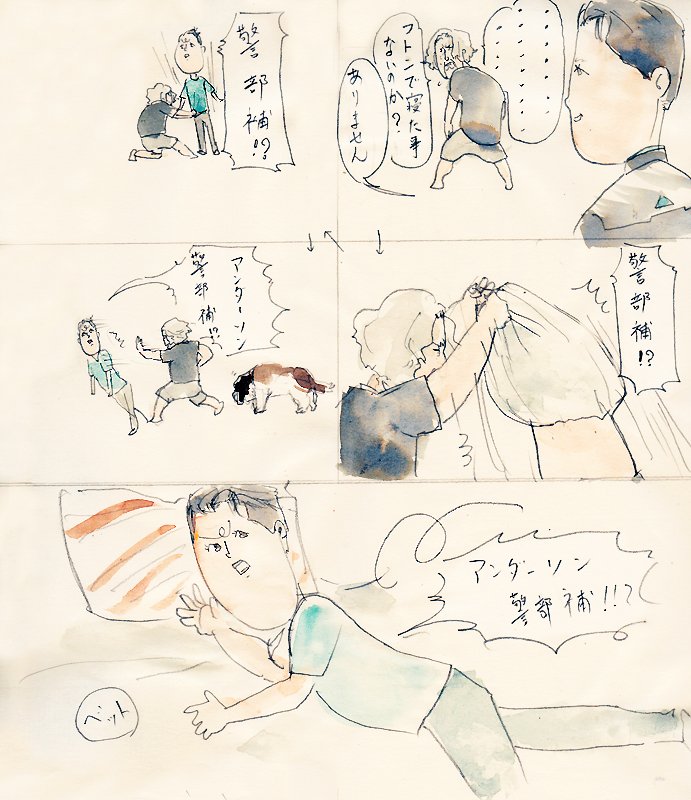 ・・・・・・・・
・・・・・・
フトンで寝た事
ないのか?
ありません
警部補!?
警部補!?
アンダーソン
警部補!?
アンダーソン
警部補!!?
ベット